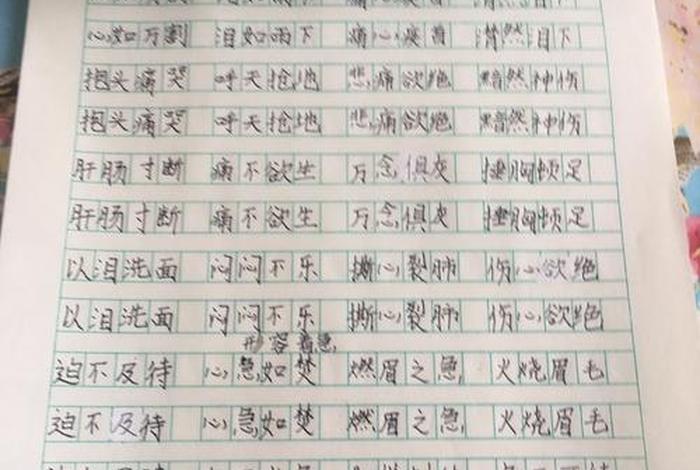 心如刀割 泪如雨下 痛心疾首 潸然泪下
抱头痛哭 呼天抢地 悲痛欲绝 黯然神伤
抱头痛哭 呼天抢地 悲痛欲绝 黯然神伤
肝肠寸断 痛不欲生 万念俱灰 捶胸顿足
肝肠寸断 痛不欲生 万念俱灰 捶胸顿足
以泪洗面 闷闷不乐 撕心裂肺 伤心欲绝
以泪洗面 闷闷不乐 撕心裂肺 伤心欲绝
形容着急
迫不及待 心急如焚 燃眉之急 火烧眉毛
迫不及待 心急如焚 燃眉之急 火烧眉毛